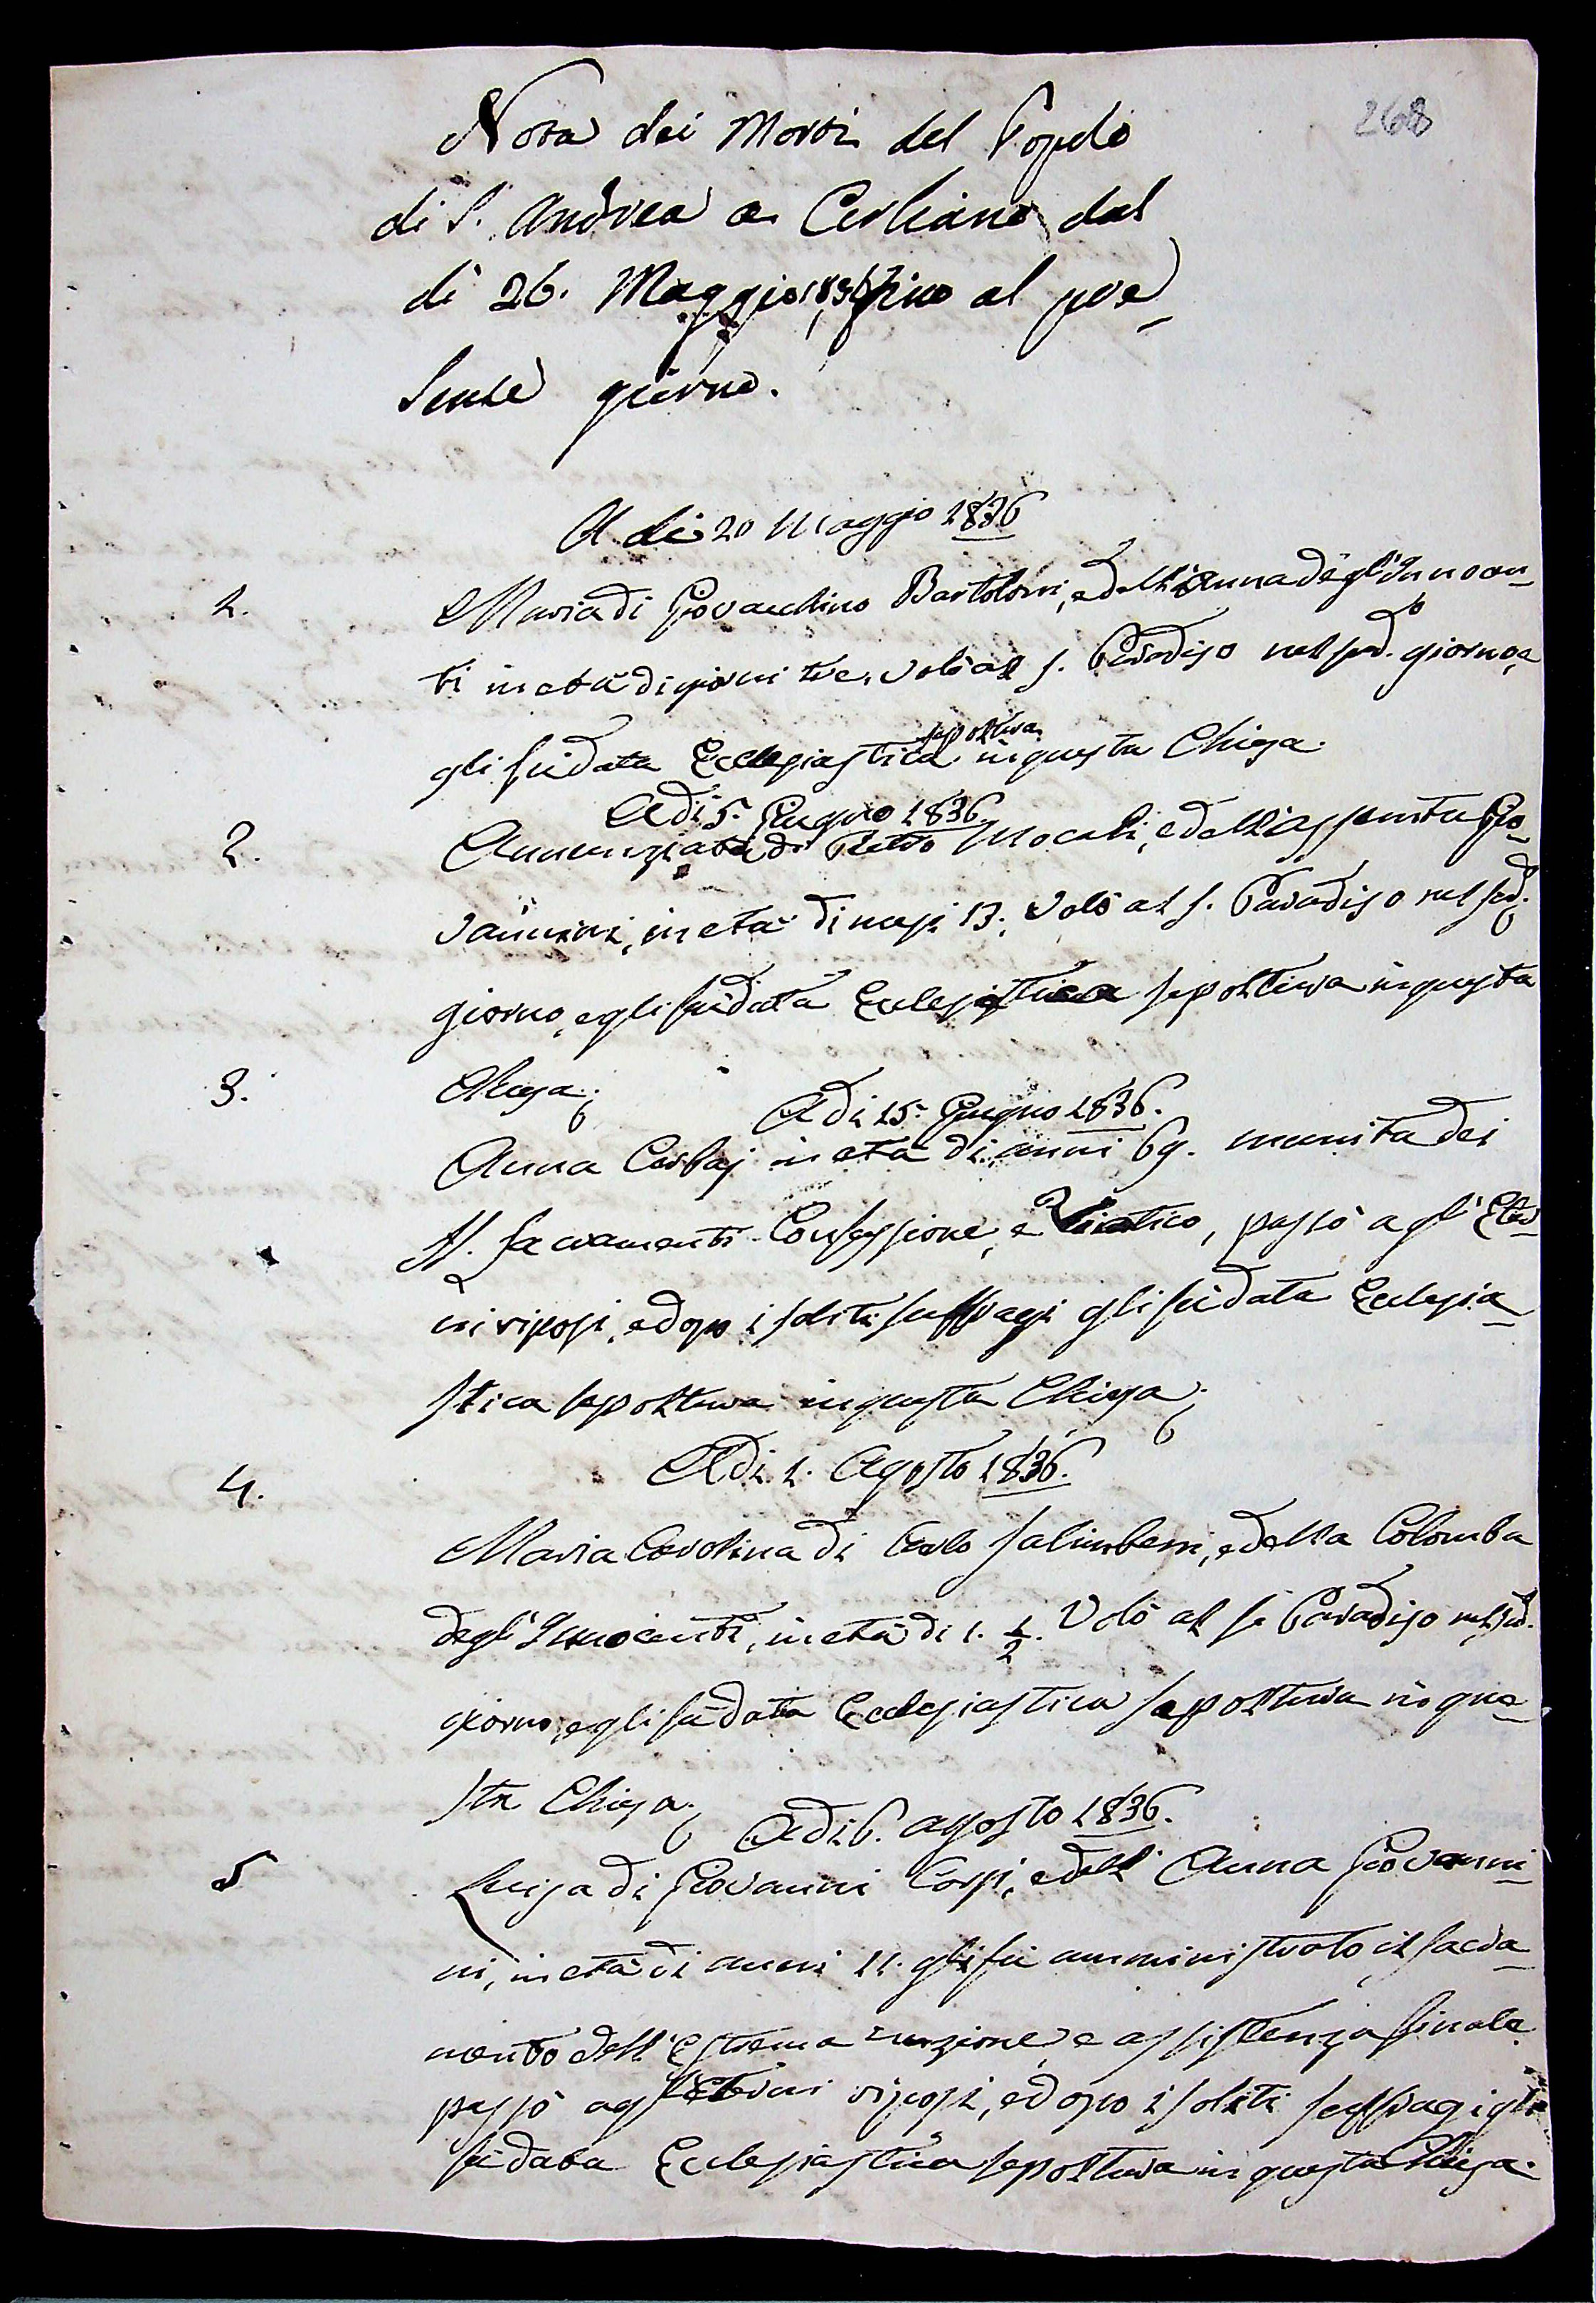 268
Nota dei Morti del Popolo
di S. Andrea a Cerliano dal
dì 26. Maggio 1836 fino al pre=
sente giorno.
A di 20 Maggio 1836
1. Maria di Giovacchino Bartolini, e dell'Anna degl'Innocen=
ti in età di giorni tre, volò al S. Paradiso nel sud.o giorno, e
gli fù data Ecclesiastica sepoltura in questa Chiesa.
Adi 5. Giugno 1836.
2. Annunziata di Pietro Mocali, e dell'Assunta Gio=
vannini, in età di mesi 13. Volò al S. Paradiso nel sud.o
giorno, e gli fù data Eclesiastica sepoltura in questa
3. Chiesa.
Adi 15. Giugno 1836.
Anna Cerbaj in età di anni 69. munita dei
SS. Sacramenti Confessione, e Viatico, passò agl'Eter=
ni riposi, e dopo i soliti suffragi gli fù data Eclesia=
stica sepoltura in questa Chiesa.
Adi 1. Agosto 1836.
4.
Maria Carolina di Carlo Salimbeni, e della Colomba
degl'Innocenti, in età di 1. 1/2. Volò al S. Paradiso nel sud.
giorno, e gli fù data Ecclesiastica sepoltura in que=
sta Chiesa.
Adi 6. agosto 1836.
5 Luisa di Giovanni Corsi, e dell'Anna Giovanni=
ni, in età di anni 11. gli fù amministrato il sacra=
mento dell'Estrema unzione, e assistenza finale
passò agl'Eterni riposi, e dopo i soliti suffragi gli
fù data Eclesiastica sepoltura in questa Chiesa.